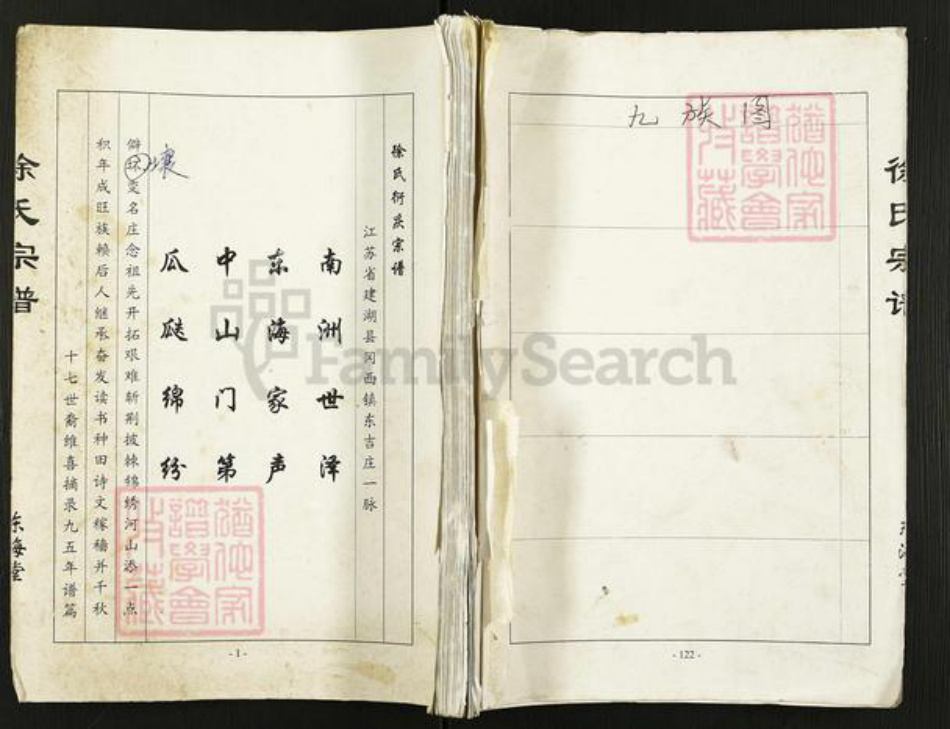 九族图
徐氏宗谱
- 122 -
徐氏衍庆宗谱
江苏省建湖县冈西镇东吉庄一脉
南洲世泽
东海家声
中山门第
瓜瓞绵纷
僻坏变名庄念祖先开拓艰难斩荆披棘锦绣河山添一点
壤
积年成旺族赖后人继承奋发读书种田诗文稼穑并千秋
十七世裔维喜摘录九五年谱篇
- 1 -
徐氏宗谱
东海堂
FamilySearch